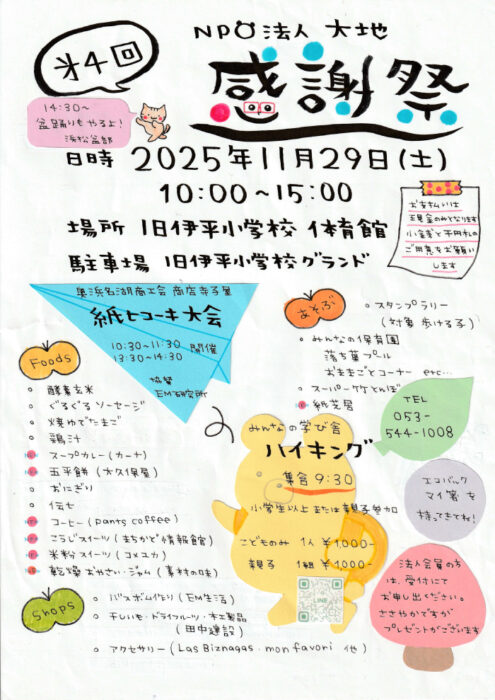 NPO法人 大地
第4回
感謝祭
14:30～
盆踊りもやるよ!
浜松盆部
日時 2025年11月29日(土)
10:00～15:00
場所 旧伊平小学校 体育館
駐車場 旧伊平小学校グランド
お支払いは
現金のみとなります
小金貨と千円札の
ご用意をお願い
します
奥浜名湖商工会 商店寺子屋
紙ヒコーキ大会
10:30～11:30
13:30～14:30 開催
協賛
EM研究所
あそぶ
スタンプラリー
(対象 歩ける子)
みんなの保育園
落ち葉プール
おままごとコーナー etc...
スーパー竹とんぼ
紙芝居
TEL
053-
544-1008
Foods
酵素玄米
ぐるぐるソーセージ
焼ゆでたまご
鶏汁
スープカレー(カーナ)
五平餅(大久保屋)
おにぎり
伝七
コーヒー(pants coffee)
こうじスイーツ(まちかど情報館)
米粉スイーツ(コメユカ)
乾燥おやさい・ジャム(素材の味)
みんなの学び舎
ハイキング
集合 9:30
小学生以上または親子参加
こどものみ 1人 ¥1,000-
親子 1組 ¥1,000-
LINE
エコバック
マイ箸を
持ってきてね!
法人会員の方
は、受付にて
お申し出ください。
ささやかですが
プレゼントがございます
Shops
バスボム作り(EM生活)
干しいも・ドライフルーツ・木工製品
(田中建設)
アクセサリー(Las Biznagas・mon favori 他)